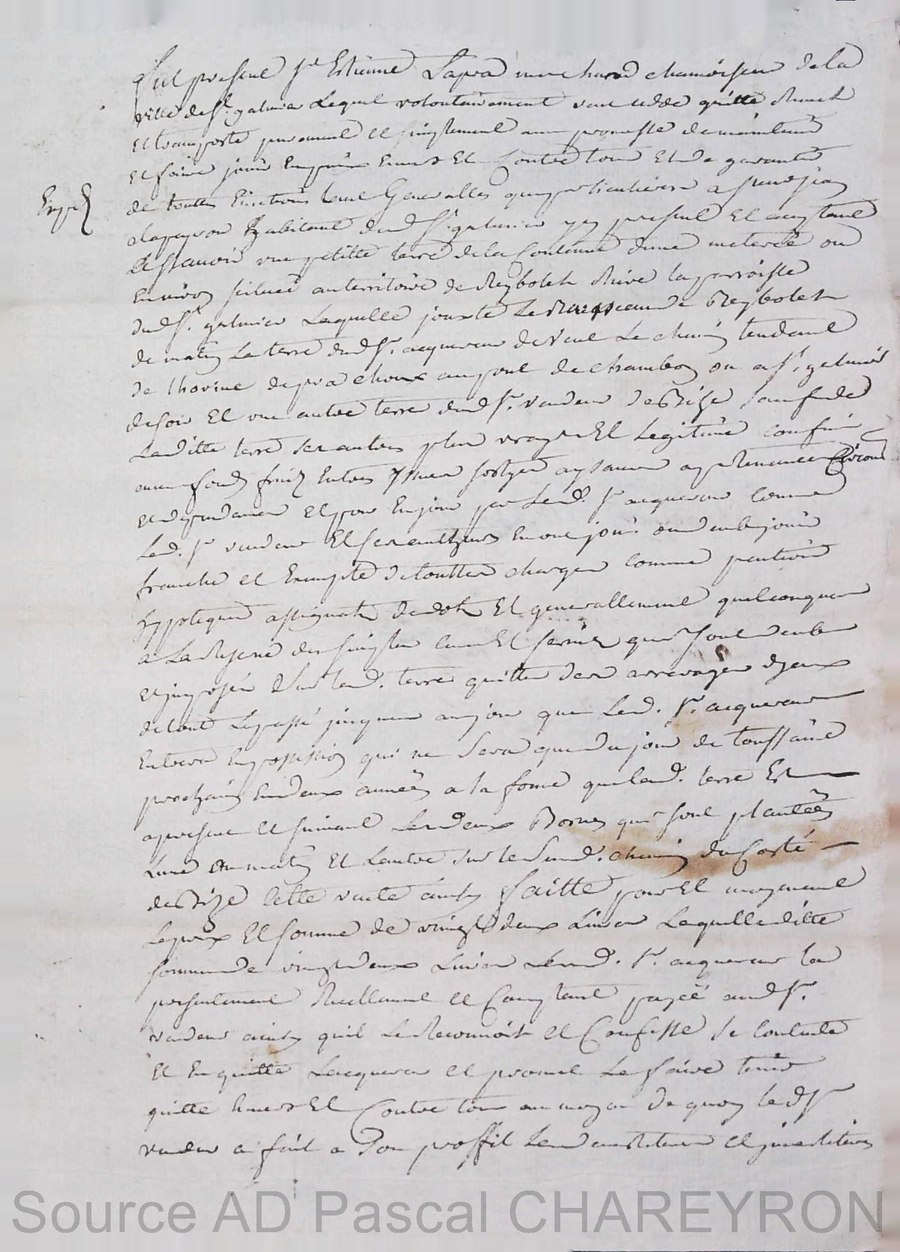 fut present Sr Estienne Lapra marchand chamoiseur de la
ville de St galmier Lequel volontairement vend cedde quitte Remet
Et transporte purement et simplement avec promesse de maintenir
Et faire jouir Envers Et Contre tous Et de garantir
de touttes Evictions tant Generalles que particulieres a
Expé
habitant dud St galmier present Et acceptant
Scavoir une petitte terre de la Contenue dune meterée ou
Environ scituée au territoire de Reybolet Rive la parroisse
dud St galmier Laquelle jouxte Le Ruisseau de Reybolet
de matin La terre dud Sr acquereur de vent Le chemin tendant
de au pont de chambon ou a St galmier
de soir Et une autre terre dud Sr vendeur de Bize sauf de
Laditte terre ses autres plus vrays Et Legitime confins
avec fonds fruits Entrées yssues aysances apartenances
et dependances Et pour En jouir par Led. Sr acquereur comme
Led. Sr vendeur Et ses autheurs En ont joui ou deub jouir
franche et Exempte de touttes charges comme pention
hypoteques assignats de dot Et generallement quelconques
a La Reserve des simples cens Et servis qui sont deubs
Et imposés sur lad. terre quitte des arrerages dyceux
de tout Le passé jusques aujour que Led. Sr acquereur
Entrera En possession qui ne sera que du jour de toussaint
prochain En deux années a la forme que lad. terre Est
apresent Et suivant Les deux Bornes qui sont plantées
Lune au matin Et Lautre sur le Susd. chemin du Costé
de Bize Cette vente ainsy faitte pour Et moyennant
Le prix Et somme de vingt deux Livres Laquelle ditte
somme de vingt deux Livres Led. Sr acquereur la
presentement Reellement et Comptant payée aud Sr
vendeur ainsy quil Le Reconnoit et Confesse se contente
Et En quitte Lacquereur et promet Le faire tenir
quitte Envers Et Contre tous au moyen de quoy led Sr
vendeur a fait a son proffit Les
Source AD Pascal CHAREYRON